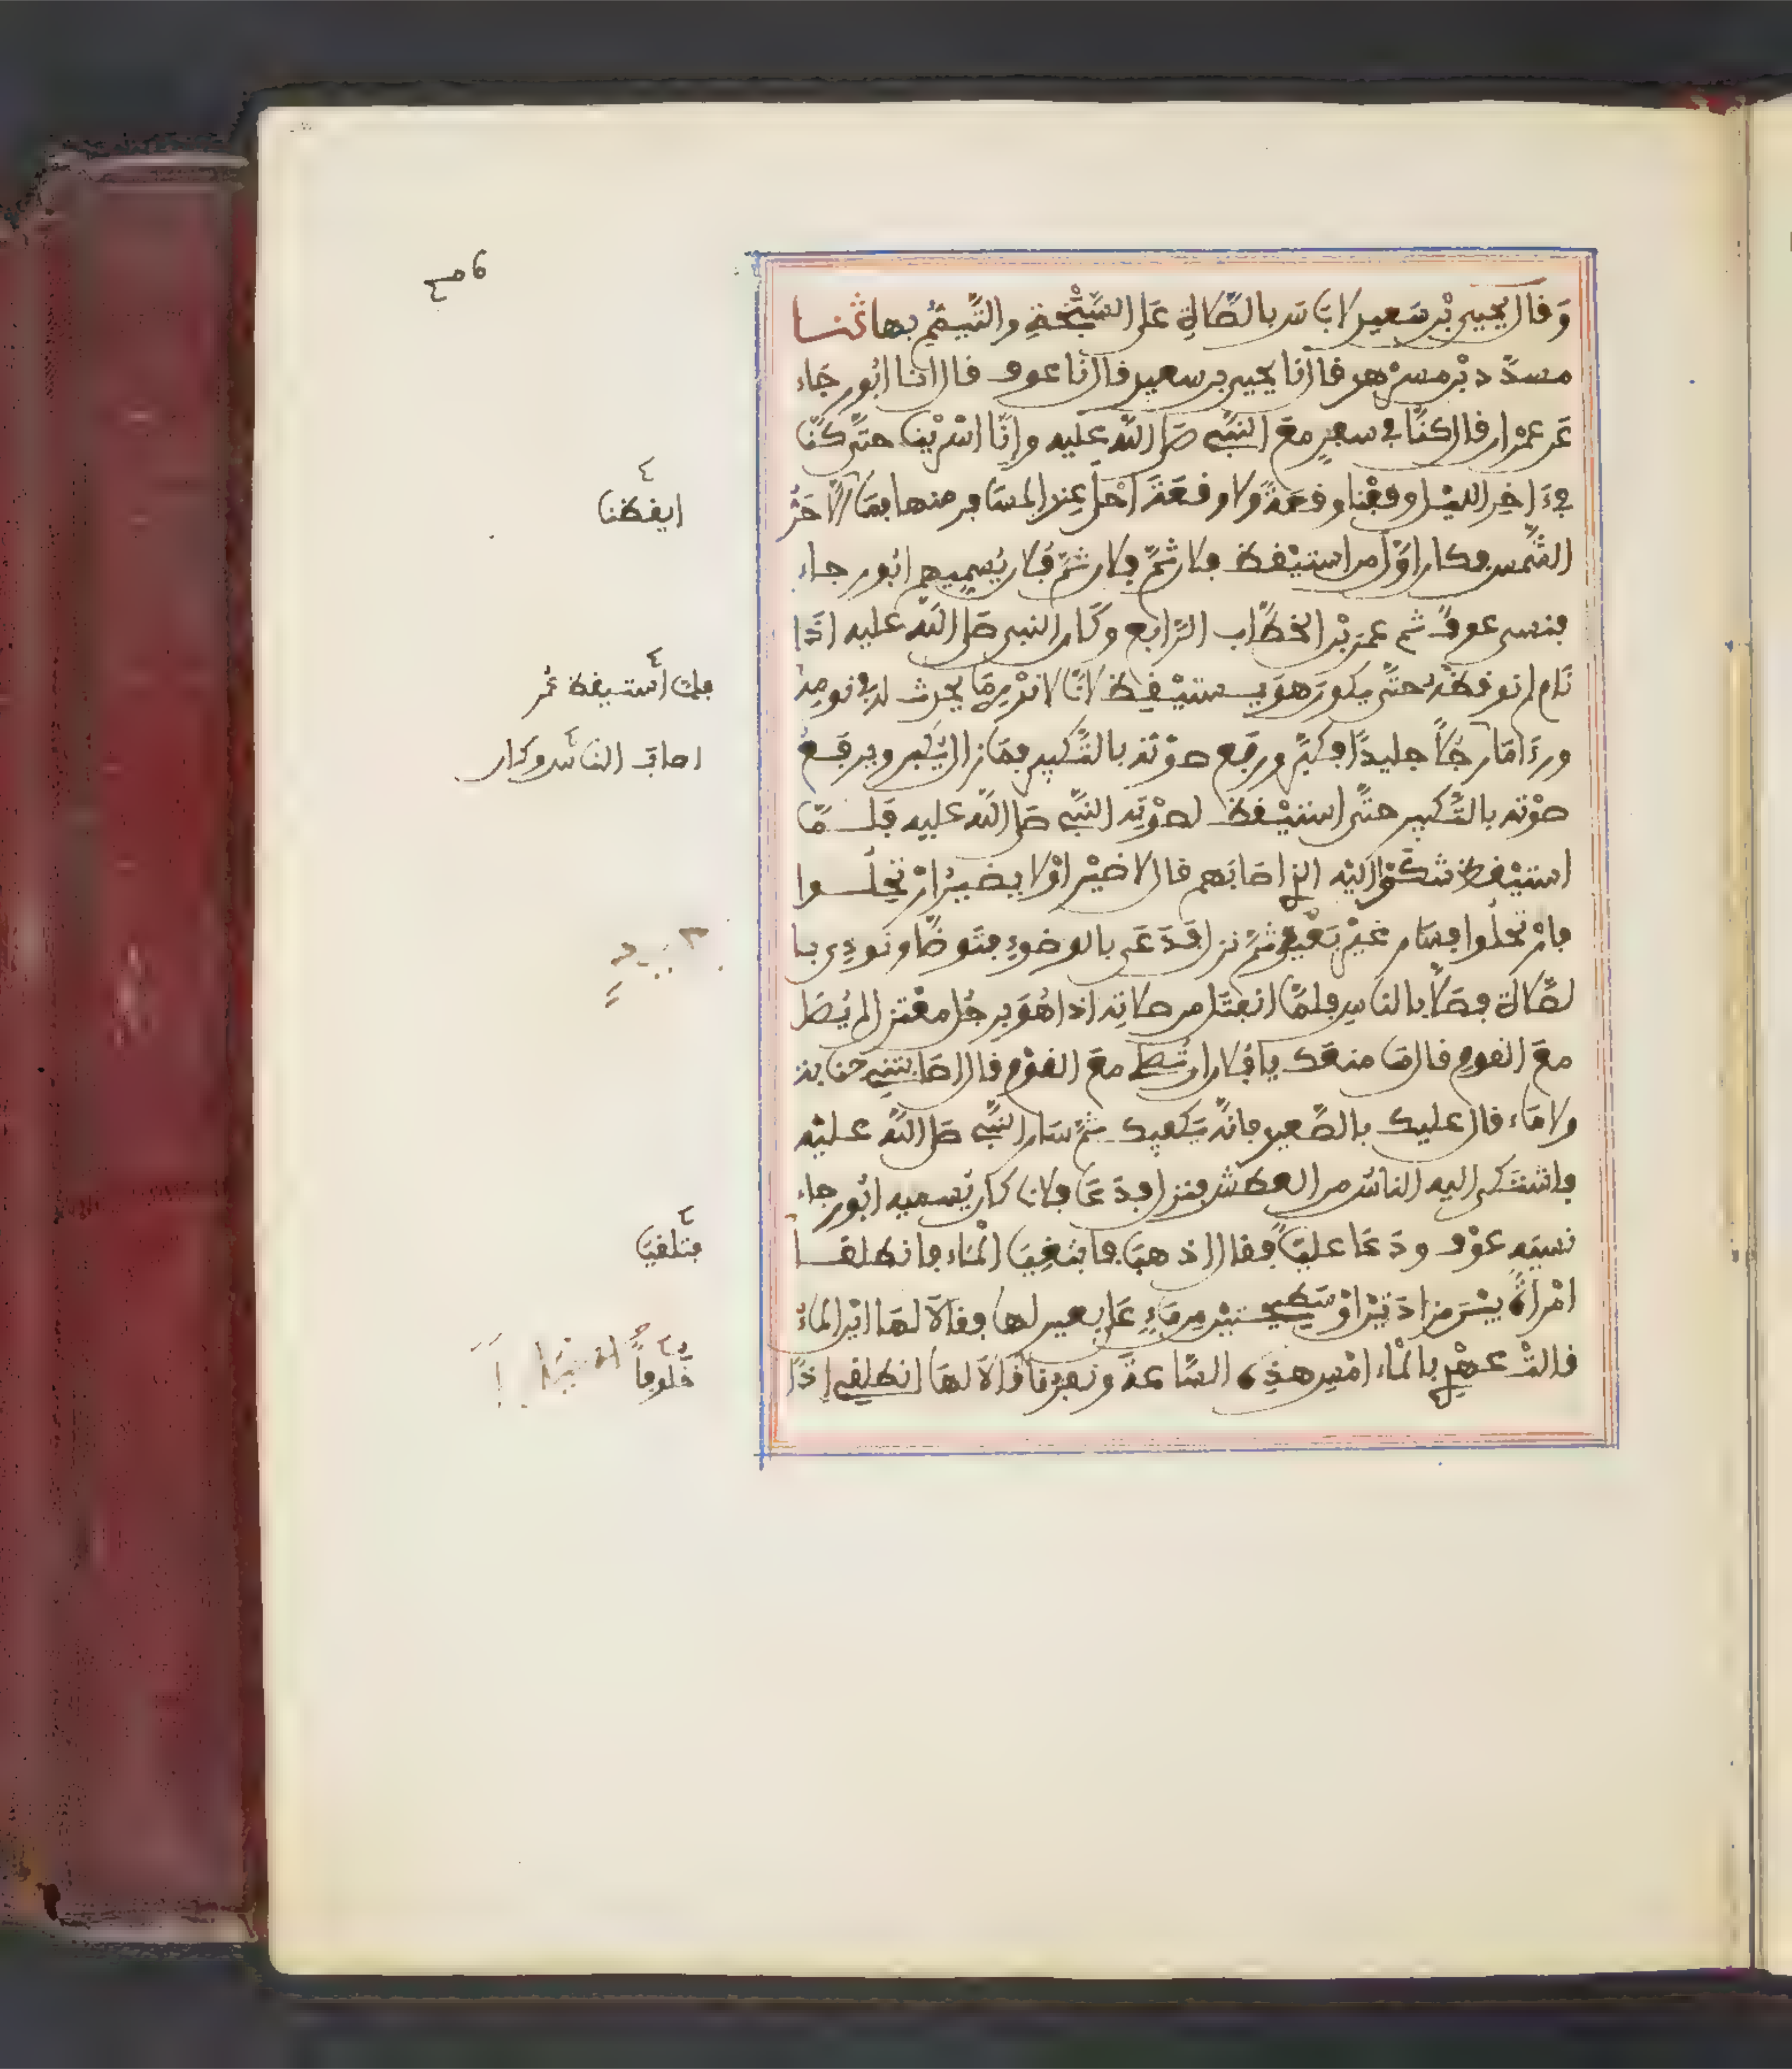 وَقال يحيى بْن سَعيد لا بَاس بالصَّلاةِ عَلى السَّبْخةِ والتَّيمُّمِ بها ثنا
مسدَّد بْن مسرْهد قال نا يحيى بن سعيد قال نا عوف قال نا ابُو رجَاء
عَن عمْران قال كنَّا في سفرٍ معَ النبيِّ صَلى اللَّه عليه وانَّا اسْرَيْنا حتَّى كنَّا
في ءَاخِر الليْل وقعْنا وقعَةً ولا وقعَةَ احْلى عِند المسَافر منها فمَا الَّا حَرُّ
الشَّمس فكان اوَّل من استيْقظ فلان ثمَّ فلان ثمَّ فُلان يُسمِيهم ابُو رجاء
فنسى عوفٌ ثم عمَر بْن الخطَّاب الرَّابع وكَان النبى صَلى اللَّه عليه اذَا
نَام لم نوقظْهُ حتَّى يكونَ هوَ يستيْقِظ لانَّا لا ندْرِى مَا يحدث له في نومِهِ
ورءَا مَا رجُلًا جليدًا فكبَّر ورفَع صوْتَه بالتَّكبير فمَا زال يُكبر ويرفَعُ
صوْته بالتَّكبير حتَّى استيْقظ لصوْتِه النَّبيّ صَلى اللَّه عليه فَلمَّا
استيْقظ شكَوْا الَيْه الذِي اصَابَهم قال لا ضيْر اوْ لا يضيرُ ارْتحِلُوا
فارْتحلُوا فسَار غيْر بَعيْدٍ ثمَّ نزل فدَعَى بالوضوءِ فتَوضَّا ونُودِى با
لصَّلاة فصَلَّا بالناسِ فلمَّا انفتَل من صلاتِه اذا هُوَ برجُل معْتزل لم يُصَل
معَ القومِ قال مَا منعَك يا فُلان ان تُصلى معَ القوْم قال اصَابتنى جنابة
ولا مَاء قال عليك بالصَّعيد فانَّه يَكفِيك ثمَّ سَار النَّبيّ صَلى اللَّه عليْه
فاشتَكى اليه الناسُ من العطَش فنزل فدَعَا فلانا كان يُسميه ابُو رجاء
نسيَه عوْف ودَعَا عليًّا فقال اذهبَا فابتغِيَا الْمَاء فانطلقا
امْراةً بيْنَ مزادَتيْن اوْ سَطِيحتيْن مِن مَاءٍ عَلى بعير لها فقالَا لهَا ايْن الماءُ
قالتْ عهْدِي بالْمَاء امْسِ هذِه السَّاعةَ ونفرُنا قالَا لهَا انطلقي اِذًا
6 مع
ايقظنا
فلما استيقظ عمر
اصاب الناس وكان
فتلقيا
خلوفاً